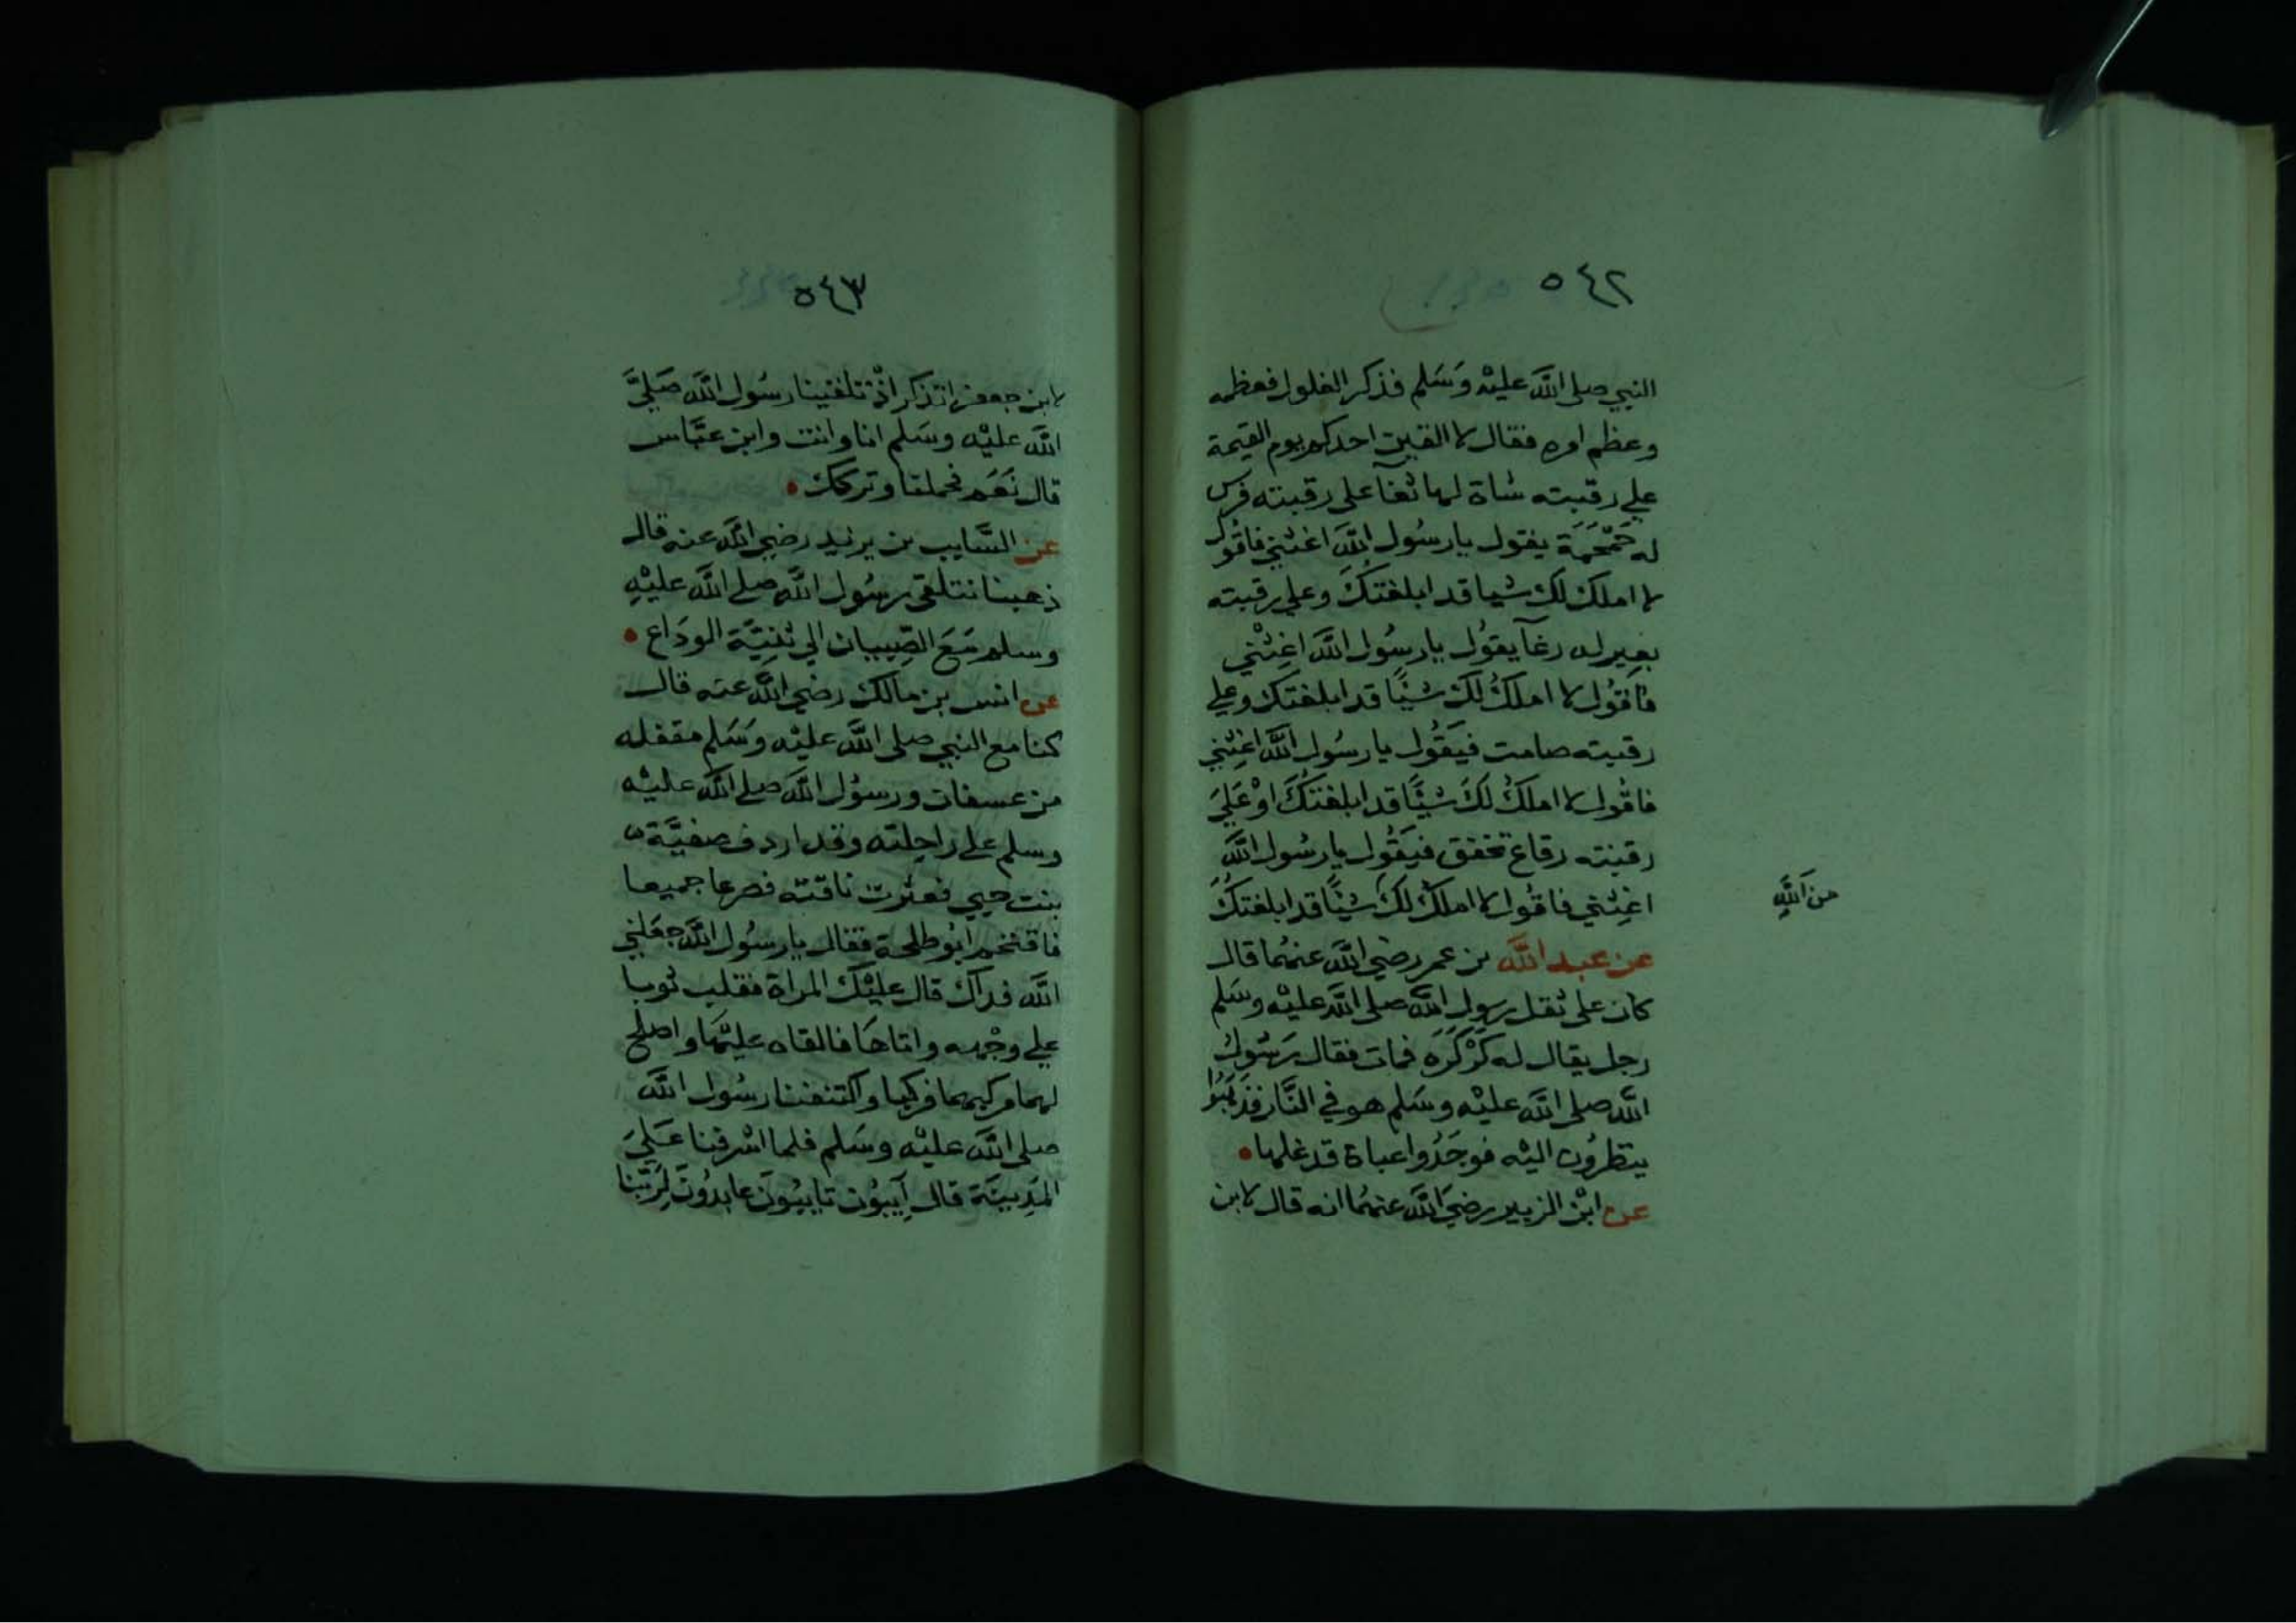 ٥٤٢
النبي صلى الله عليْه وَسَلم فذكر الغلول فعظمه
وعظم امره فقال لا القين احدكم يوم القيمة
علي رقبته شاة لها ثغآ على رقبته فرس
له حَمْحَمَة يقول يا رسُول اللَّه اغثني فاقول
لا املك لك شيا قد ابلغتكَ وعلي رقبته
بعير له رغآ يقول يا رسُول اللَّه اغِثني
فاقول لا املكُ لك شيًا قد ابلغتك وعلي
رقبته صامت فيَقُول يا رسُول اللَّه اغِثني
فاقُول لا املكُ لكَ شيًا قد ابلغتكَ اوْ عَليَ
رقبته رقاع تخفق فيَقُول يا رسُول اللَّه
اغِثني فاقُول لا املك لكَ شيًا قد ابلغتكَ
من اللَّهِ
عن عبد اللَّه بن عمر رضي اللَّه عنهُما قال
كان على ثقل رسول اللَّه صلى اللَّه عليْه وسَلم
رجل يقال له كَرْكَرَه فمات فقال رَسُول
اللَّه صلى اللَّه عليْه وسَلم هو في النَّار فذهَبُوا
ينظرُون اليْه فوجَدُوا عباة قد غلها
عن ابْن الزبير رضيَ اللَّه عنهمُا انه قال لابن
٥٤٣
لابن جعفر اتذكر اذْ تلقينا رسُول اللَّه صَليَّ
اللَّه عليْه وسَلم انا وانت وابن عبَّاس
قال نَعَم فحملنا وتركك
عن السَّايب بن يزيد رضي اللَّه عنه قال
ذهبنا نتلقى رسُول اللَّه صلى اللَّه عليْهِ
وسلم مَعَ الصِّبيان الي ثنِيَّة الودَاع
عن انس بن مالك رضي اللَّه عنه قال
كنا مع النبي صلى اللَّه عليْه وسَلم مقفله
من عسفان ورسوُل اللَّه صلى اللَّه عليْه
وسلم على راحلته وقد اردف صفيَّة
بنت حيي فعثرت ناقته فصرعا جميعا
فاقتحم ابُو طلحة فقال يا رسُول اللَّه جعَلني
اللَّه فداك قال عليْك المراة فقلب ثوبا
علي وجْهه واتاهَا فالقاه عليْهَا واصلح
لهما مركبهما فركبا واكتنفنا رسُول اللَّه
صلى اللَّه عليْه وسَلم فلما اشرفنا عَليَ
المَدِينَة قال آيبُون تايبُونَ عابدُونَ لِرَبّنا